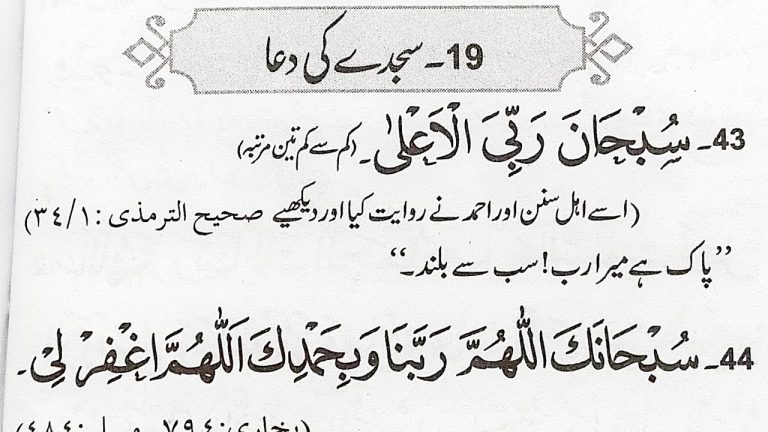 19۔ سجدے کی دعا
43۔ سُبْحَانَ رَبِّيَ الْاَعْلىٰ۔ (کم سے کم تین مرتبہ)
(اسے اہل سنن اور احمد نے روایت کیا اور دیکھیے صحیح الترمذی : ٣٤/١)
”پاک ہے میرا رب! سب سے بلند۔“
44۔ سُبْحَانَكَ اللّٰهُمَّ رَبَّنَا وَبِحَمْدِكَ اَللّٰهُمَّ اغْفِرْ لِيْ۔